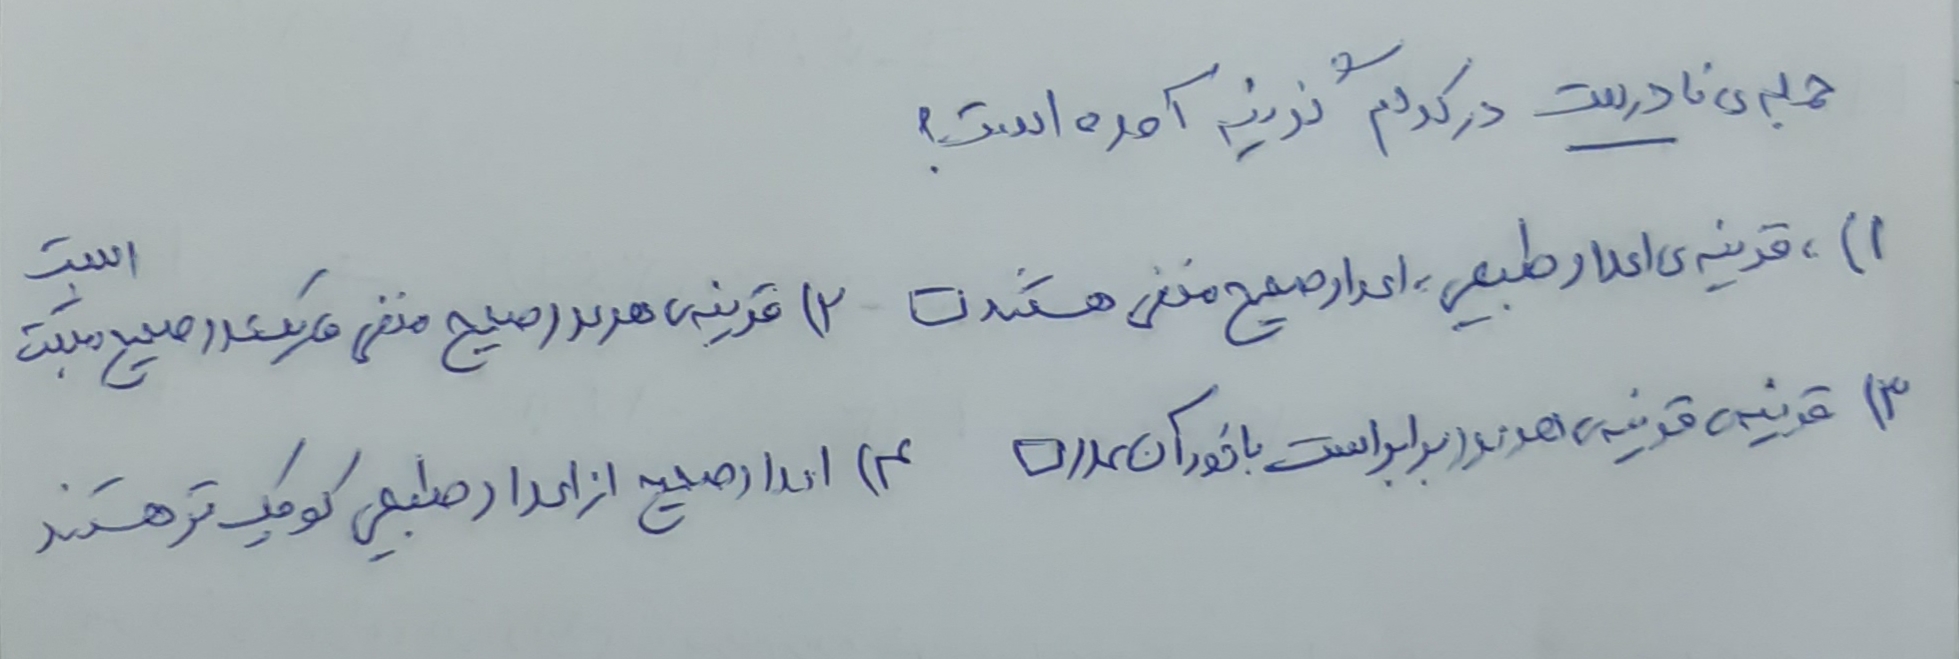 جمله ی نادرست در کدام گزینه آمده است؟
۱) قرینه ی اعداد طبیعی، اعداد صحیح منفی هستند ۲) قرینه ی هر عدد صحیح منفی یک عدد صحیح مثبت است
۳) قرینه ی قرینه ی هر عدد برابر است با خود آن عدد ۴) اعداد صحیح از اعداد طبیعی کوچک تر هستند